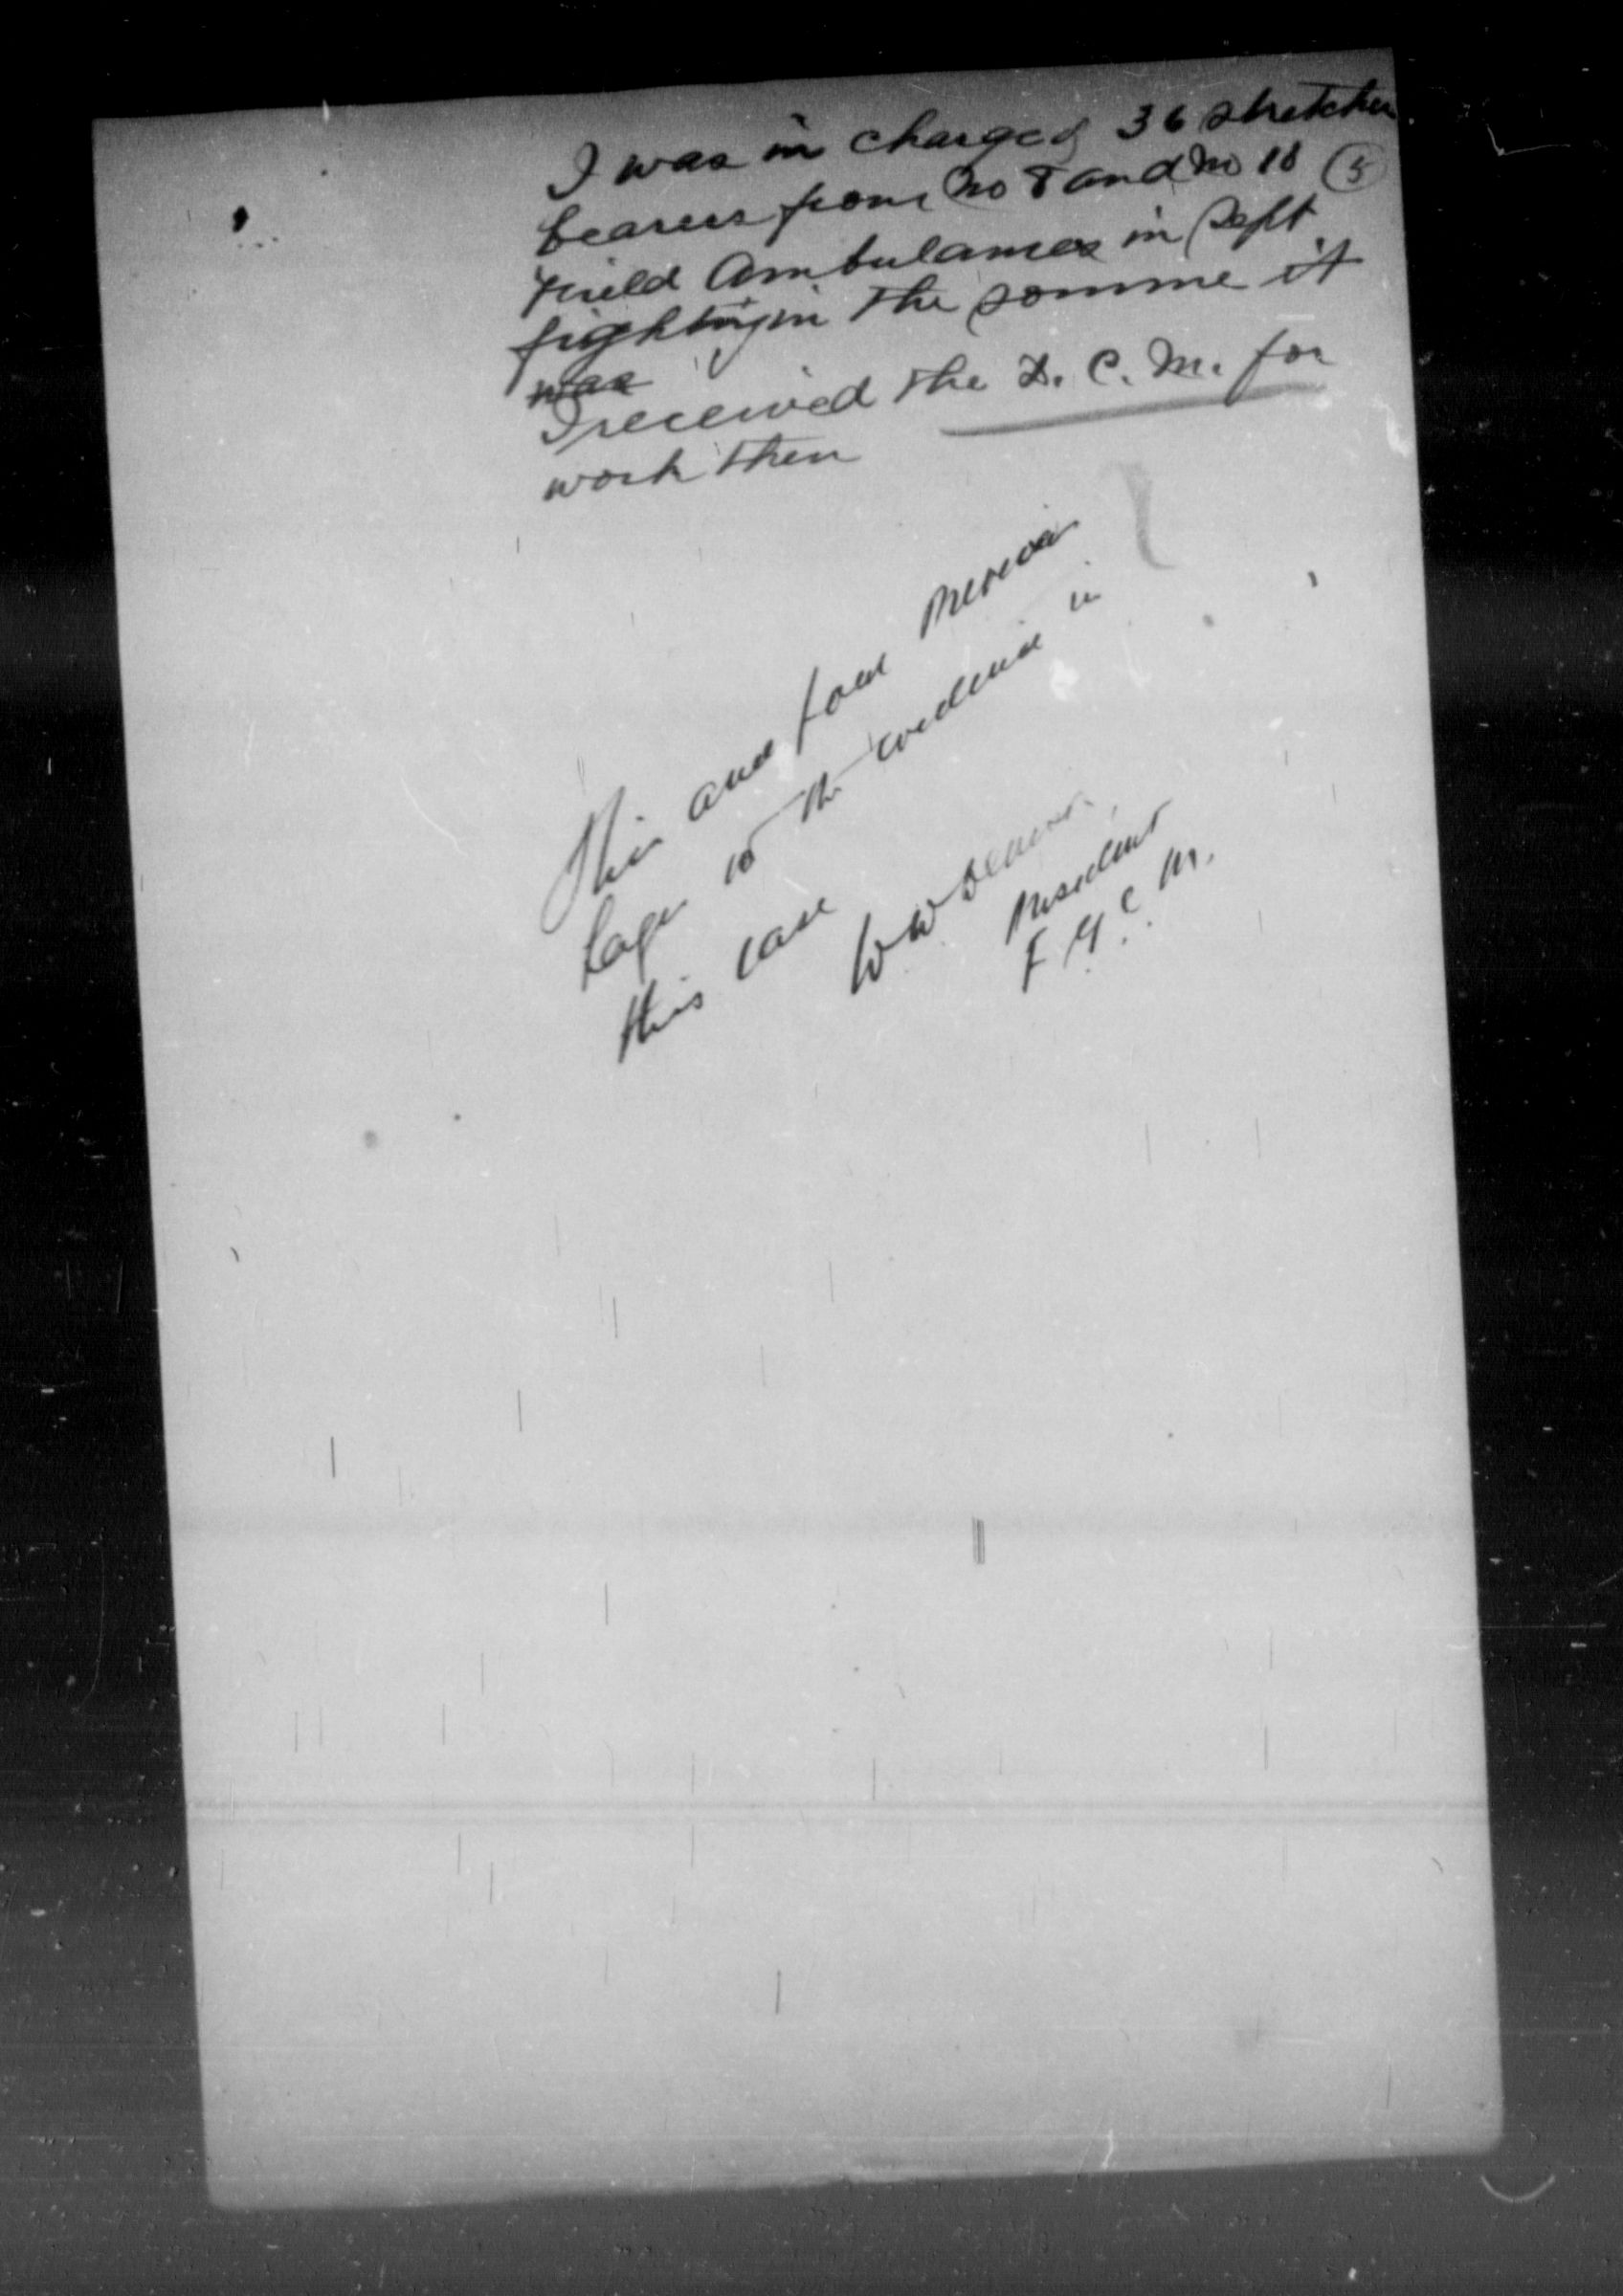 I was in charge of 36 stretcher
bearers from No 8 and No 10 (5)
Field Ambulances in Sept
fighting in the Somme it
was
I received the D. C. M. for
work then
This and four previous
Pages is the evidence in
this case
W W
President
F. G. C. M.